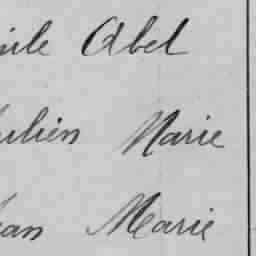 ile Abel
ulien Marie
ean Marie